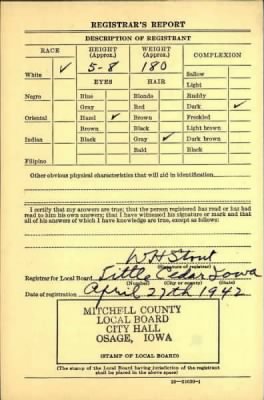 REGISTRAR'S REPORT
DESCRIPTION OF REGISTRANT
RACE HEIGHT (Approx.) WEIGHT (Approx.) COMPLEXION
White ✓ 5-8 180 Sallow
EYES HAIR Light
Negro Blue Blonde Ruddy
Gray Red Dark ✓
Oriental Hazel ✓ Brown Freckled
Brown Black Light brown
Indian Black Gray ✓ Dark brown
Bald Black
Filipino
Other obvious physical characteristics that will aid in identification
I certify that my answers are true; that the person registered has read or has had
read to him his own answers; that I have witnessed his signature or mark and that
all of his answers of which I have knowledge are true, except as follows:
W H Stout
(Signature of registrar)
Registrar for Local Board Little Cedar Iowa
(Number) (City or county) (State)
Date of registration April 27th 1942
MITCHELL COUNTY
LOCAL BOARD
CITY HALL
OSAGE, IOWA
(STAMP OF LOCAL BOARD)
(The stamp of the Local Board having jurisdiction of the registrant
shall be placed in the above space)